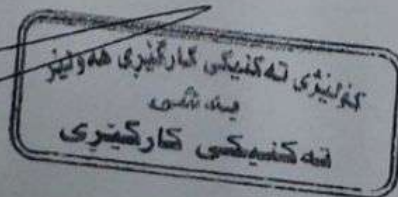 کۆلیژی تەکنیکی کارگێڕی هەولێر
بەشی
تەکنیکی کارگێڕی